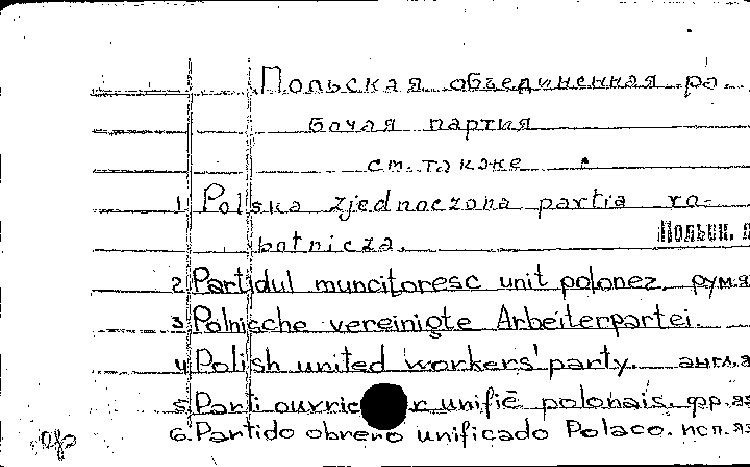 Польская объединенная ра-
бочая партия
см. также
1. Polska zjednoczona partia ro-
botnicza. Польск. я
2. Partidul muncitoresc unit polonez. рум.я
3. Polnische vereinigte Arbeiterpartei.
4. Polish united workers' party. англ.я
5. Parti unifié polonais. фр.яз
6. Partido obrero unificado Polaco. исп.яз